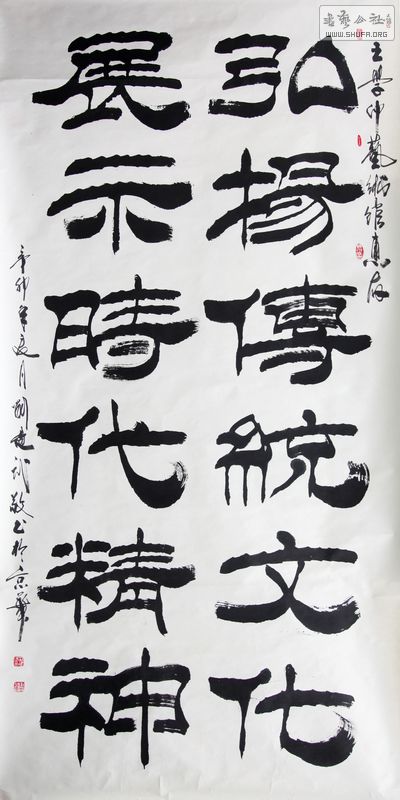 王學仲藝術館惠存
弘揚傳統文化
展示時代精神
辛卯年夏月劉建武敬書於京華
書藝公社
WWW.SHUFA.ORG